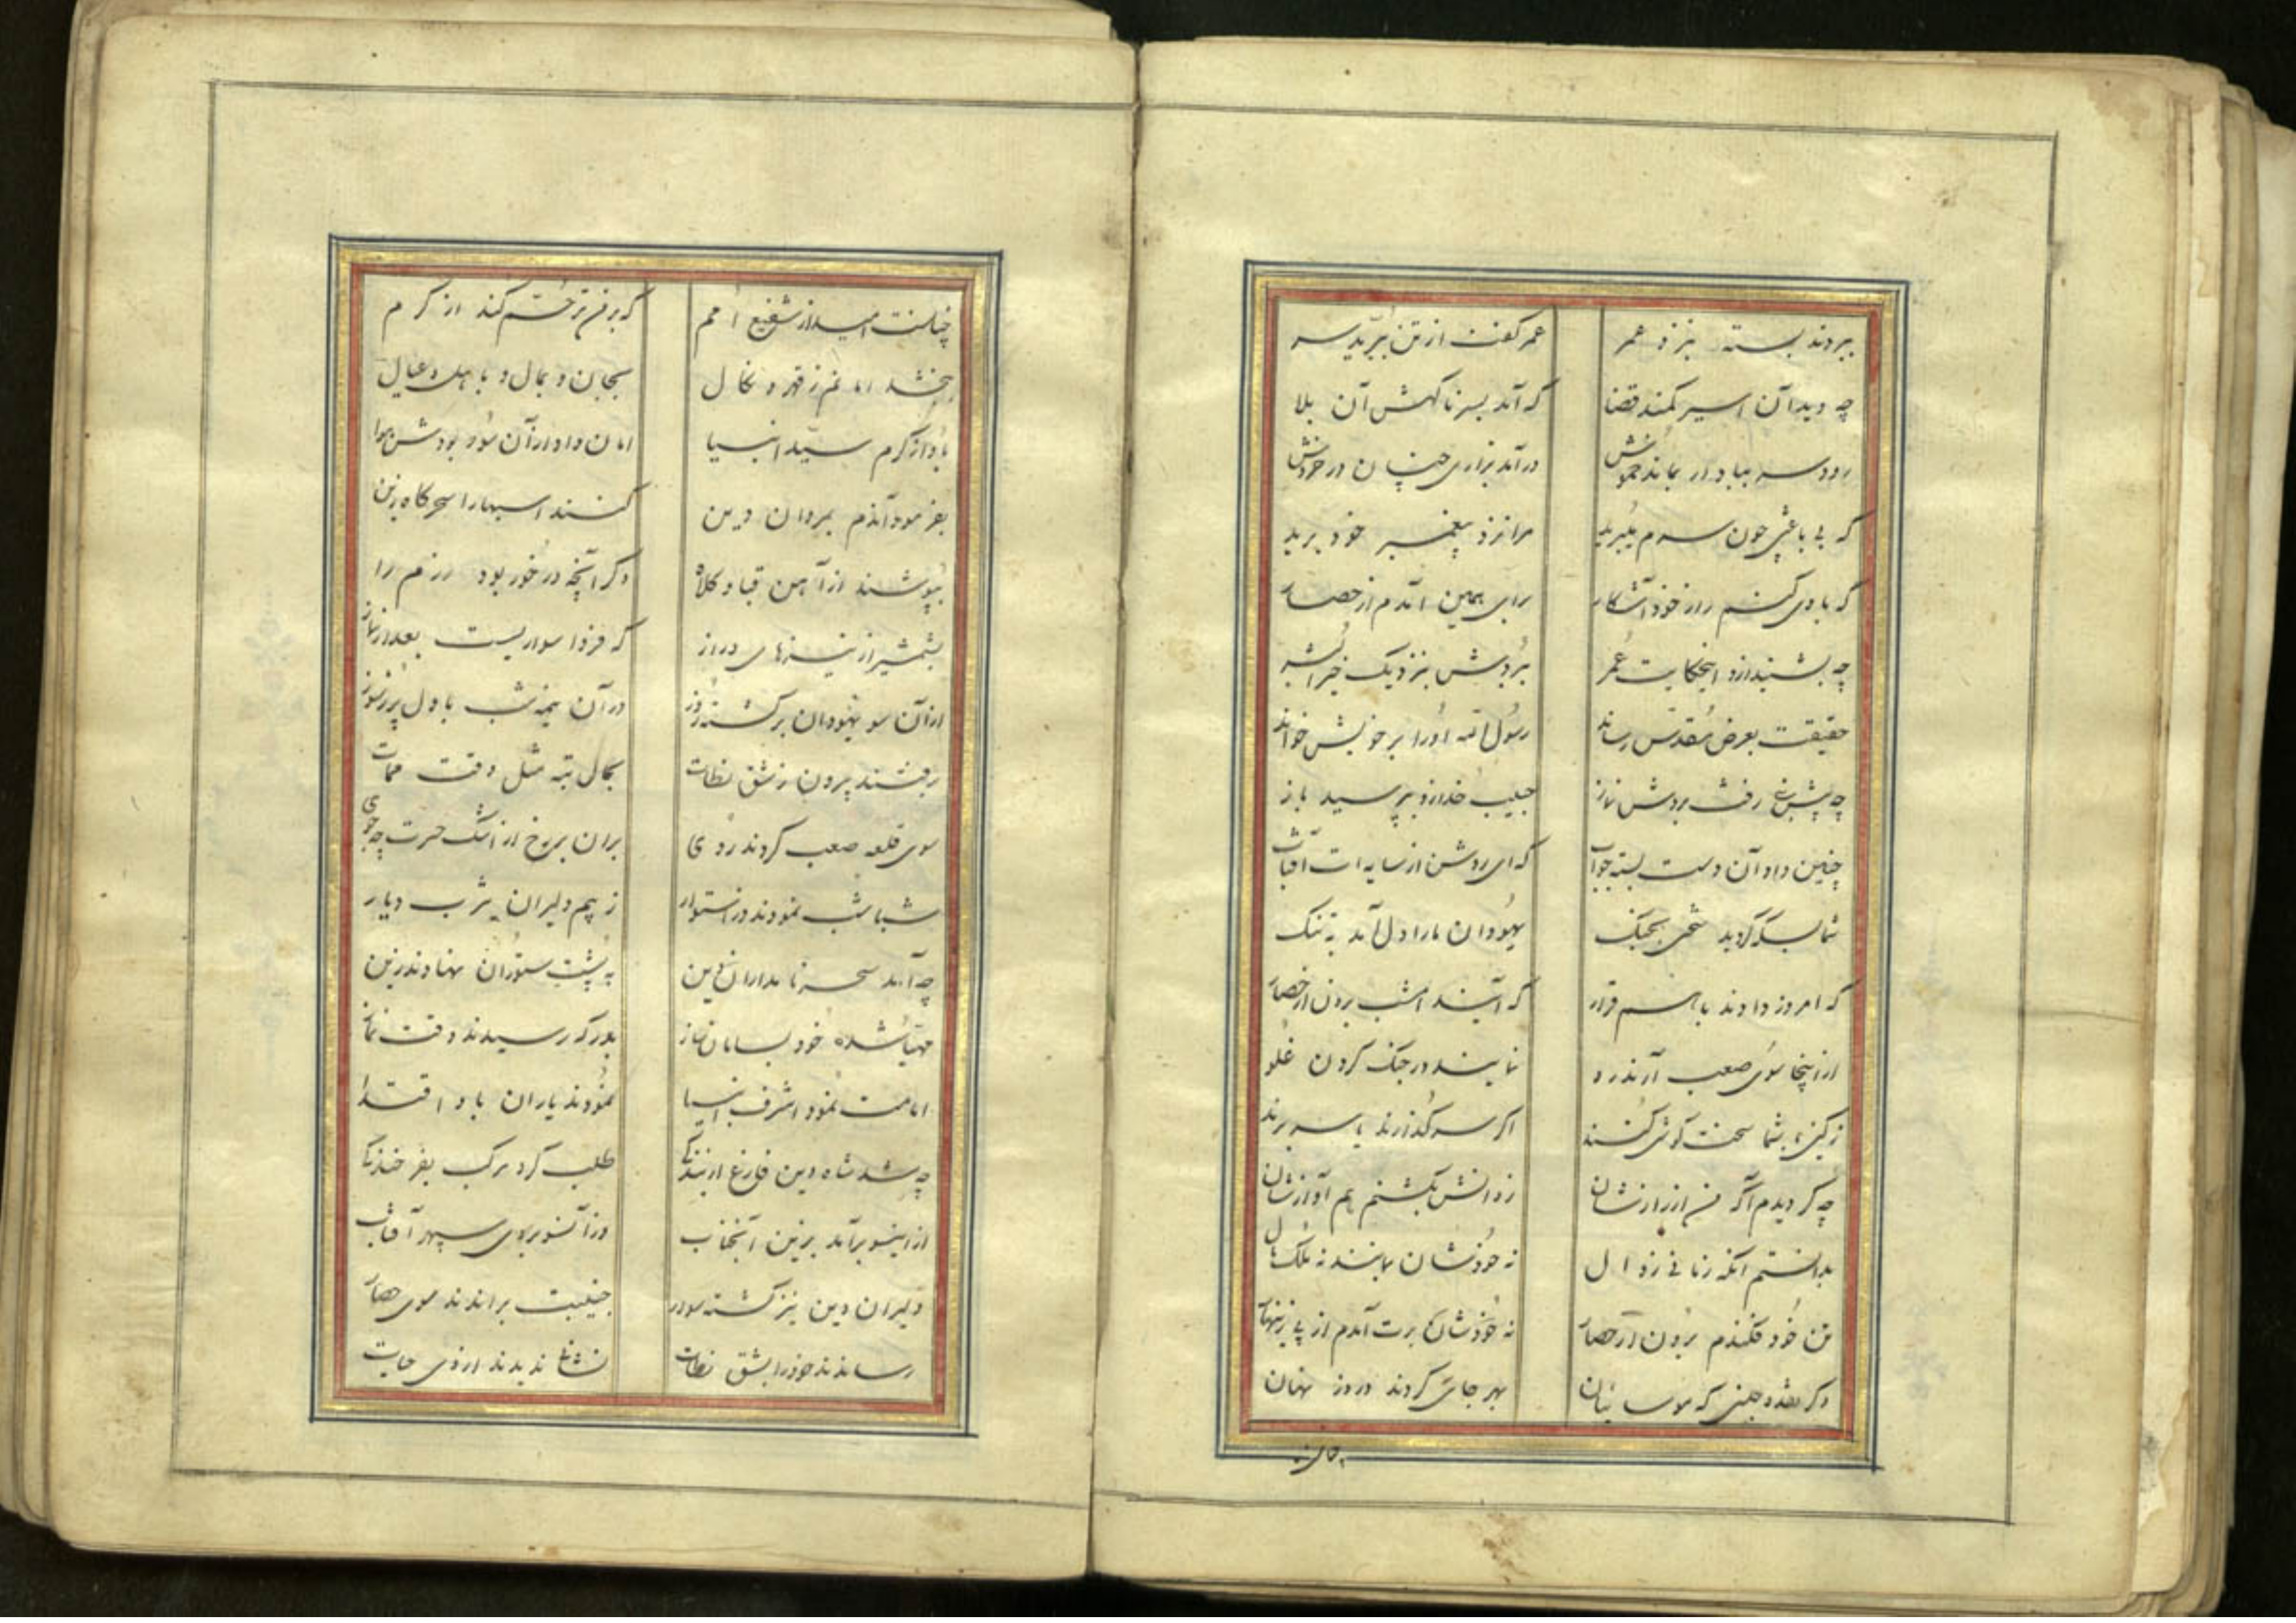 ببردند بسته بنزد عمر عمر گفت از تن ببرید سر
چه دید آن اسیر کمند قضا که آمد بسر ناکهش آن بلا
رود سر بباد ار بماند خموش در آمد بزاری چنان در خروش
که بی باعثی چون سرم میبرید مرا نزد پیغمبر خود برید
که با وی کنم راز خود آشکار برای همین آمدم از حصار
چه بشنید ازو اینحکایت عمر ببردش بنزدیک خیرالبشر
حقیقت بعرض مقدس رساند رسول الله او را بر خویش خواند
چه پیش رفت بردش نماز حبیب خدا زو بپرسید باز
چنین داد آن دست بسته جواب که ای روشن از سایه ات آفتاب
شما بسکه کردید سخی بجنک یهودان ما را دل آمد به تنک
که امروز دادند با هم قرار که آیند امشب برون از حصار
از اینجا سوی صعب آرند رو نمایند در جنک کردن غلو
ز کین با شما سخت کوشی کنند اکر سر کذارند یا سر برند
چه کردیدم آکه من از رازشان ز دانش نکشتم هم آوازشان
بدانستم آنکه زمانی زوال نه خودشان بمانند نه ملک
تن خود فکندم برون از حصار نه خودشان برت آمدم از پی زینهار
دکر جمعی که موسائیان بهر جای کردند در وز نهان
چنانست امید از شفیع امم که بر من ترحم کند از کرم
ببخشد امانم ز قهر و نکال بجان و بمال و با هل و عیال
باو از کرم سید انبیا امان داد و ار آن سو بودش
بفرمود آندم بمردان دین کنند اسبها را سحرکاه زین
بپوشند از آهن قبا و کلاه دکر آنچه در خور بود رزم را
بشمشیر از نیزهای دراز که فردا سواریست بعد از نماز
از آن سو یهودان برکشته روز در آن نیمه شب با دل پر ز سوز
برفتند بیرون ز شق نطات بحال تبه مثل وقت ممات
سوی قلعه صعب کردند روی بران بر رخ از اشک حسرت چه جوی
شباشب نمودند در استوار ز بیم دلیران یثرب دیار
چه آمد سحر نامداران دین به پشت ستوران نهادند زین
مهیا شده خود بسامان ساز بدرکه رسیدند وقت نماز
امامت نمود اشرف انبیا نمودند یاران باو اقتدا
چه شد شاه دین فارغ از بندکی طلب کرد مرکب بفرخندکی
از اینسو برآمد بزین آنجناب وز آنسو بروی سپهر آفتاب
دلیران دین نیز کشته سوار جنیبت براندند سوی حصار
رساندند خود را بشق نطات نشانی ندیدند از ذی حیات